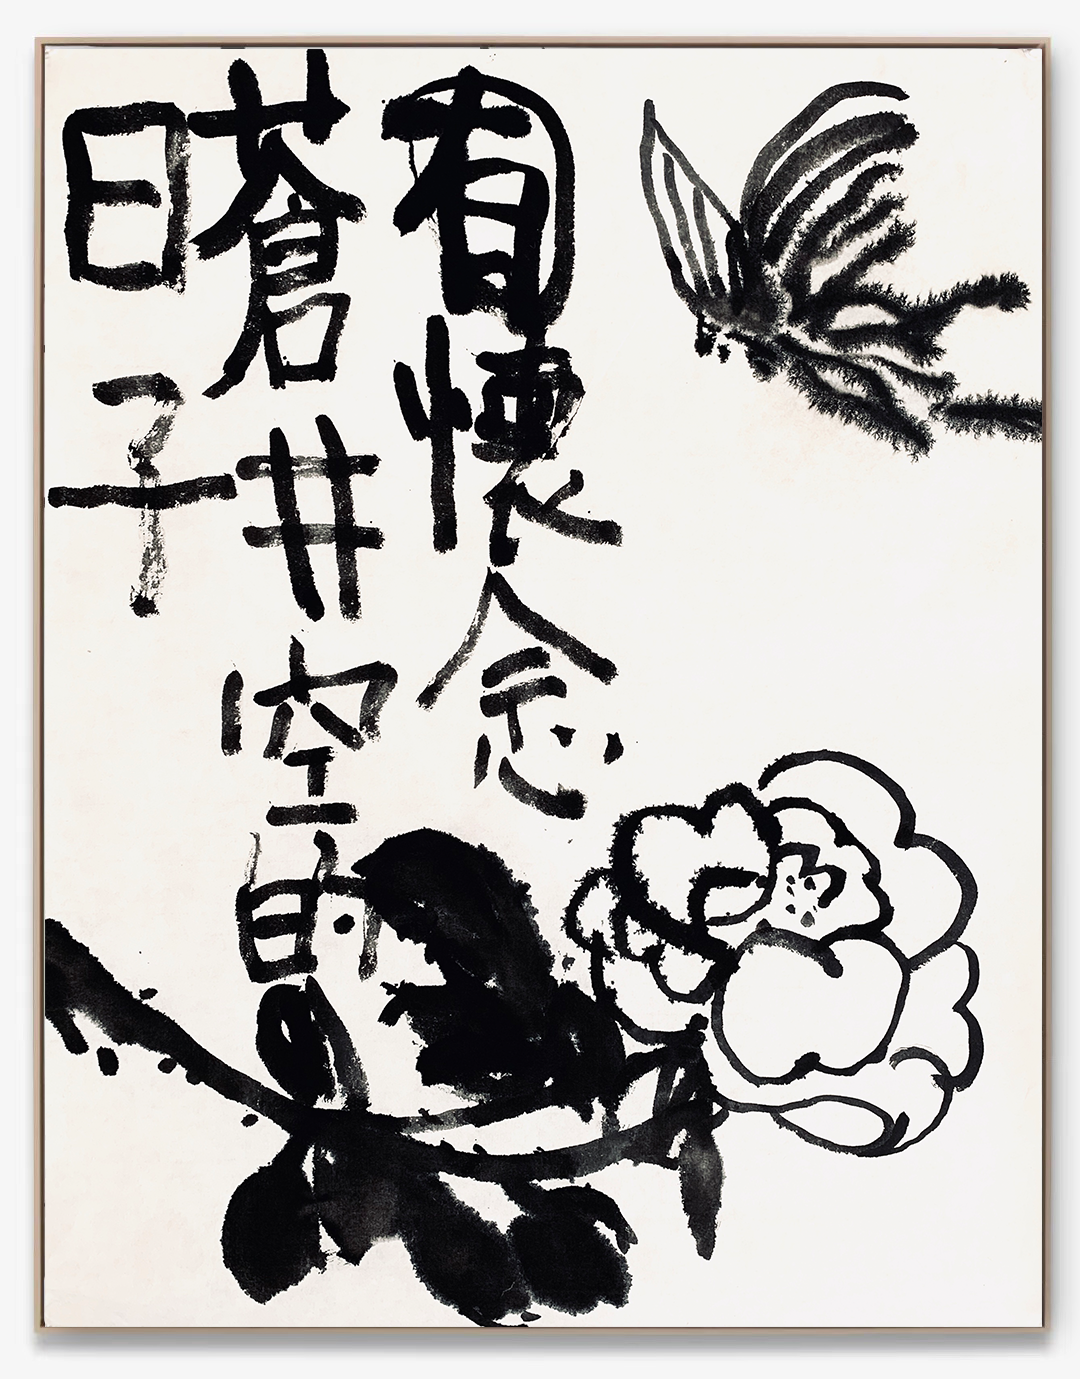 有懷念
蒼井空的
日子